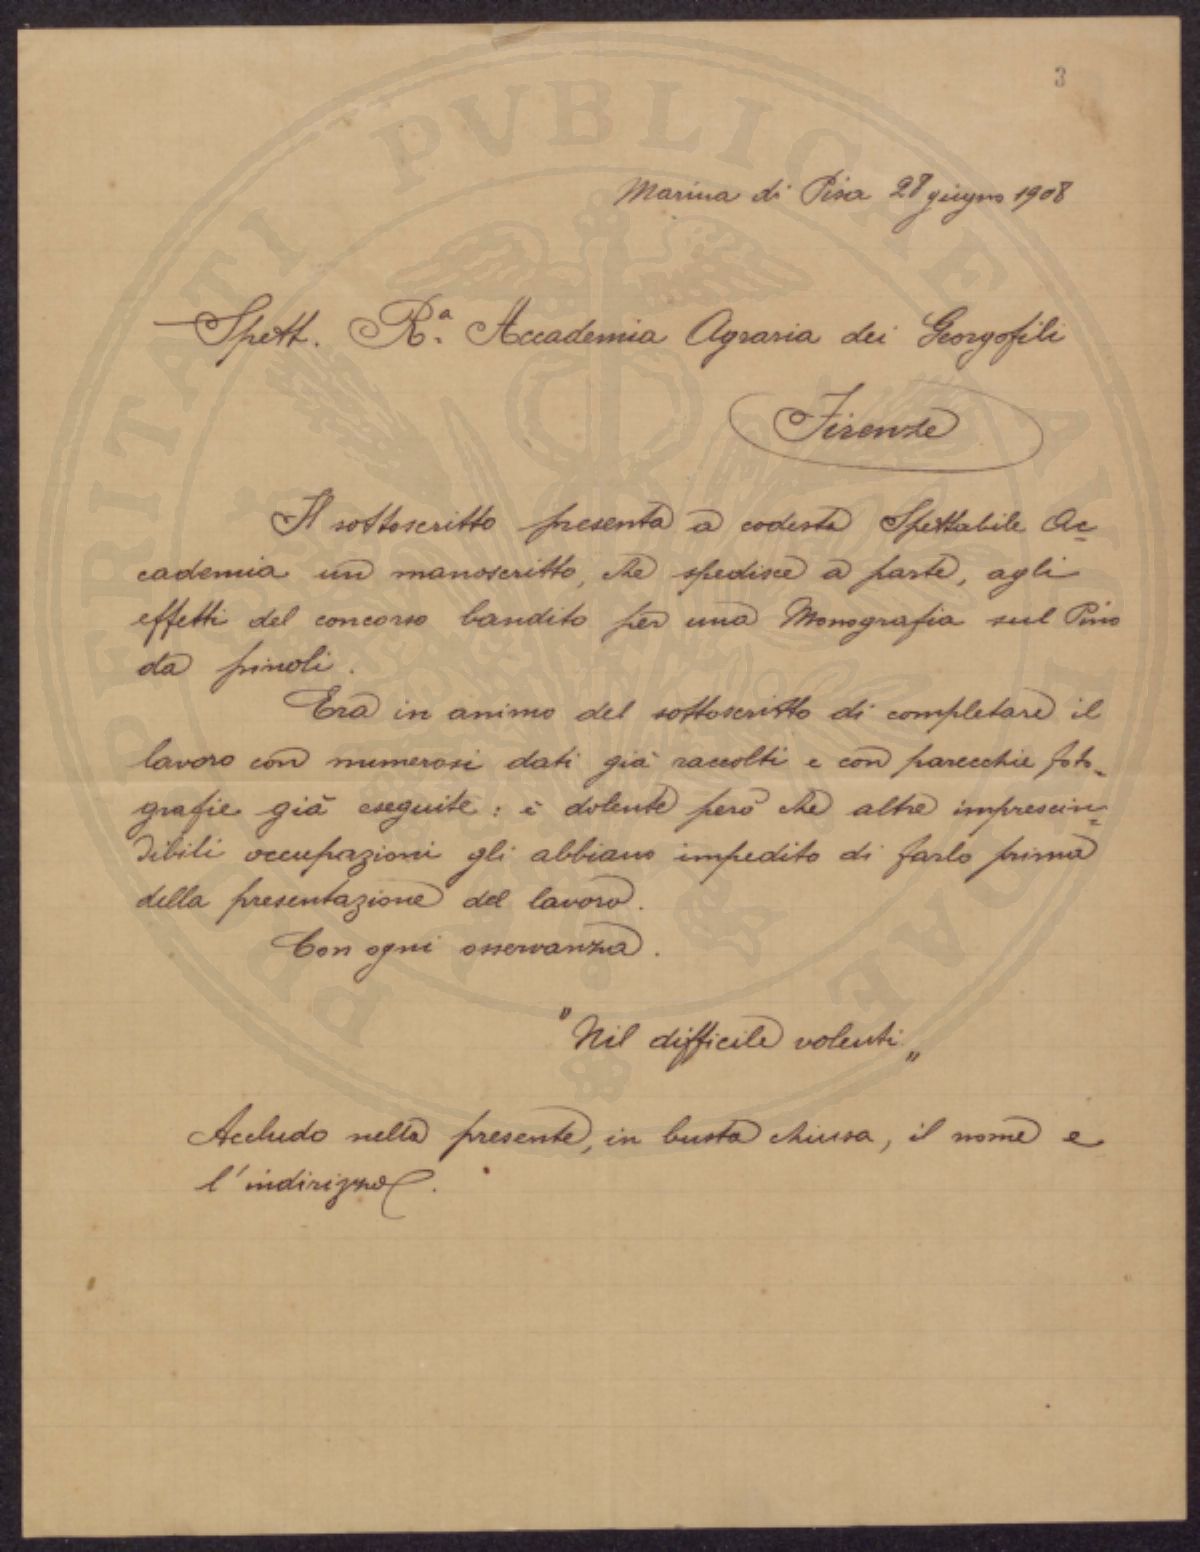 3
Marina di Pisa 28 giugno 1908
Spett. R.ª Accademia Agraria dei Georgofili
Firenze
Il sottoscritto presenta a codesta Spettabile Ac=
cademia un manoscritto, che spedisce a parte, agli
effetti del concorso bandito per una Monografia sul Pino
da pinoli.
Era in animo del sottoscritto di completare il
lavoro con numerosi dati già raccolti e con parecchie foto=
grafie già eseguite: è dolente però che altre imprescin=
dibili occupazioni gli abbiano impedito di farlo prima
della presentazione del lavoro.
Con ogni osservanza.
"Nil difficile volenti„
Accludo nella presente, in busta chiusa, il nome e
l'indirizzo.
PROSPERITATI PUBLICAE AUGENDAE